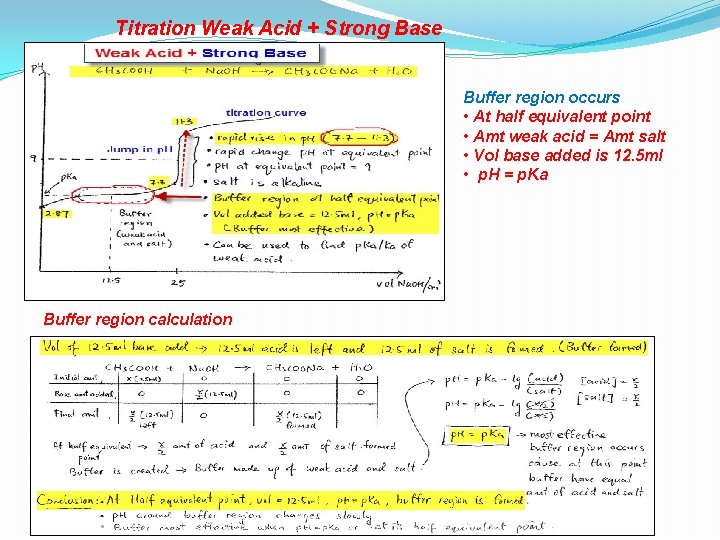 Titration Weak Acid + Strong Base
Weak Acid + Strong Base
CH3COOH + NaOH → CH3COONa + H2O
pH
11.3
titration curve
• rapid rise in pH (7.7 – 11.3)
Jump in pH
• rapid change pH at equivalent point
9
• pH at equivalent point = 9
pKa
7.7
• salt is alkaline
• Buffer region at half equivalent point
2.87
Buffer region (weak acid and salt)
• Vol added base = 12.5ml, pH=pKa
(Buffer most effective)
• Can be used to find pKa/Ka of
weak acid.
12.5
25
vol NaOH/cm3
Buffer region occurs
• At half equivalent point
• Amt weak acid = Amt salt
• Vol base added is 12.5ml
• pH = p.Ka
Buffer region calculation
Vol of 12.5ml base add → 12.5ml acid is left and 12.5ml of salt is formed. (Buffer formed)
CH3COOH + NaOH → CH3COONa + H2O
Initial amt x(25ml) 0 0 0
Base amt added 0 x/2 (12.5ml) 0 0
Final amt x/2 (12.5ml) left 0 x/2 (12.5ml) formed
At half equivalent point → x/2 amt of acid and x/2 amt of salt formed
Buffer is created → Buffer made up of weak acid and salt
pH = pKa – lg (acid)/(salt)
[acid] = x/2
pH = pKa – lg (x/2)/(x/2)
[salt] = x/2
pH = pKa → most effective
buffer region occurs
cause at this point
buffer have equal
amt of acid and salt
Conclusion:- At Half equivalent point, vol = 12.5ml, pH=pKa, buffer region is formed.
• pH around buffer region changes slowly
• Buffer most effective when pH=pKa or at its half equivalent point.